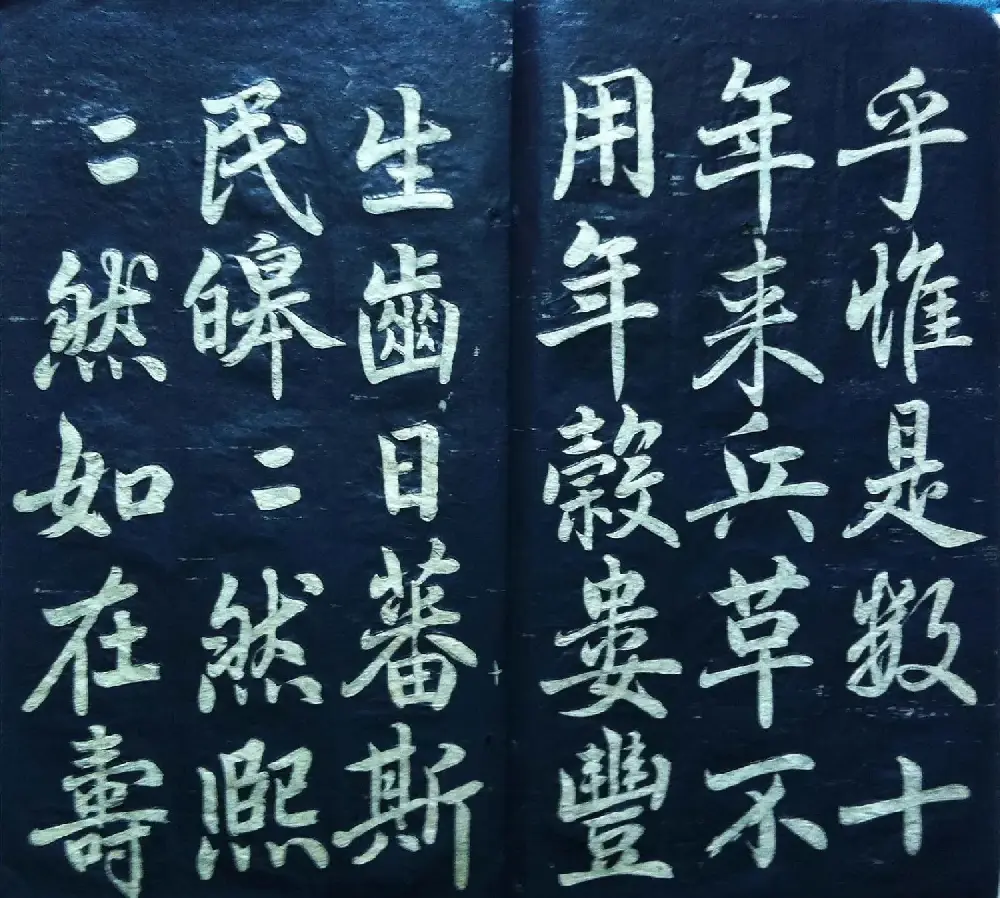 乎惟是数十
年来兵草不
用年榖娄豐
生齒日蕃斯
民皞二然熙
二然如在壽